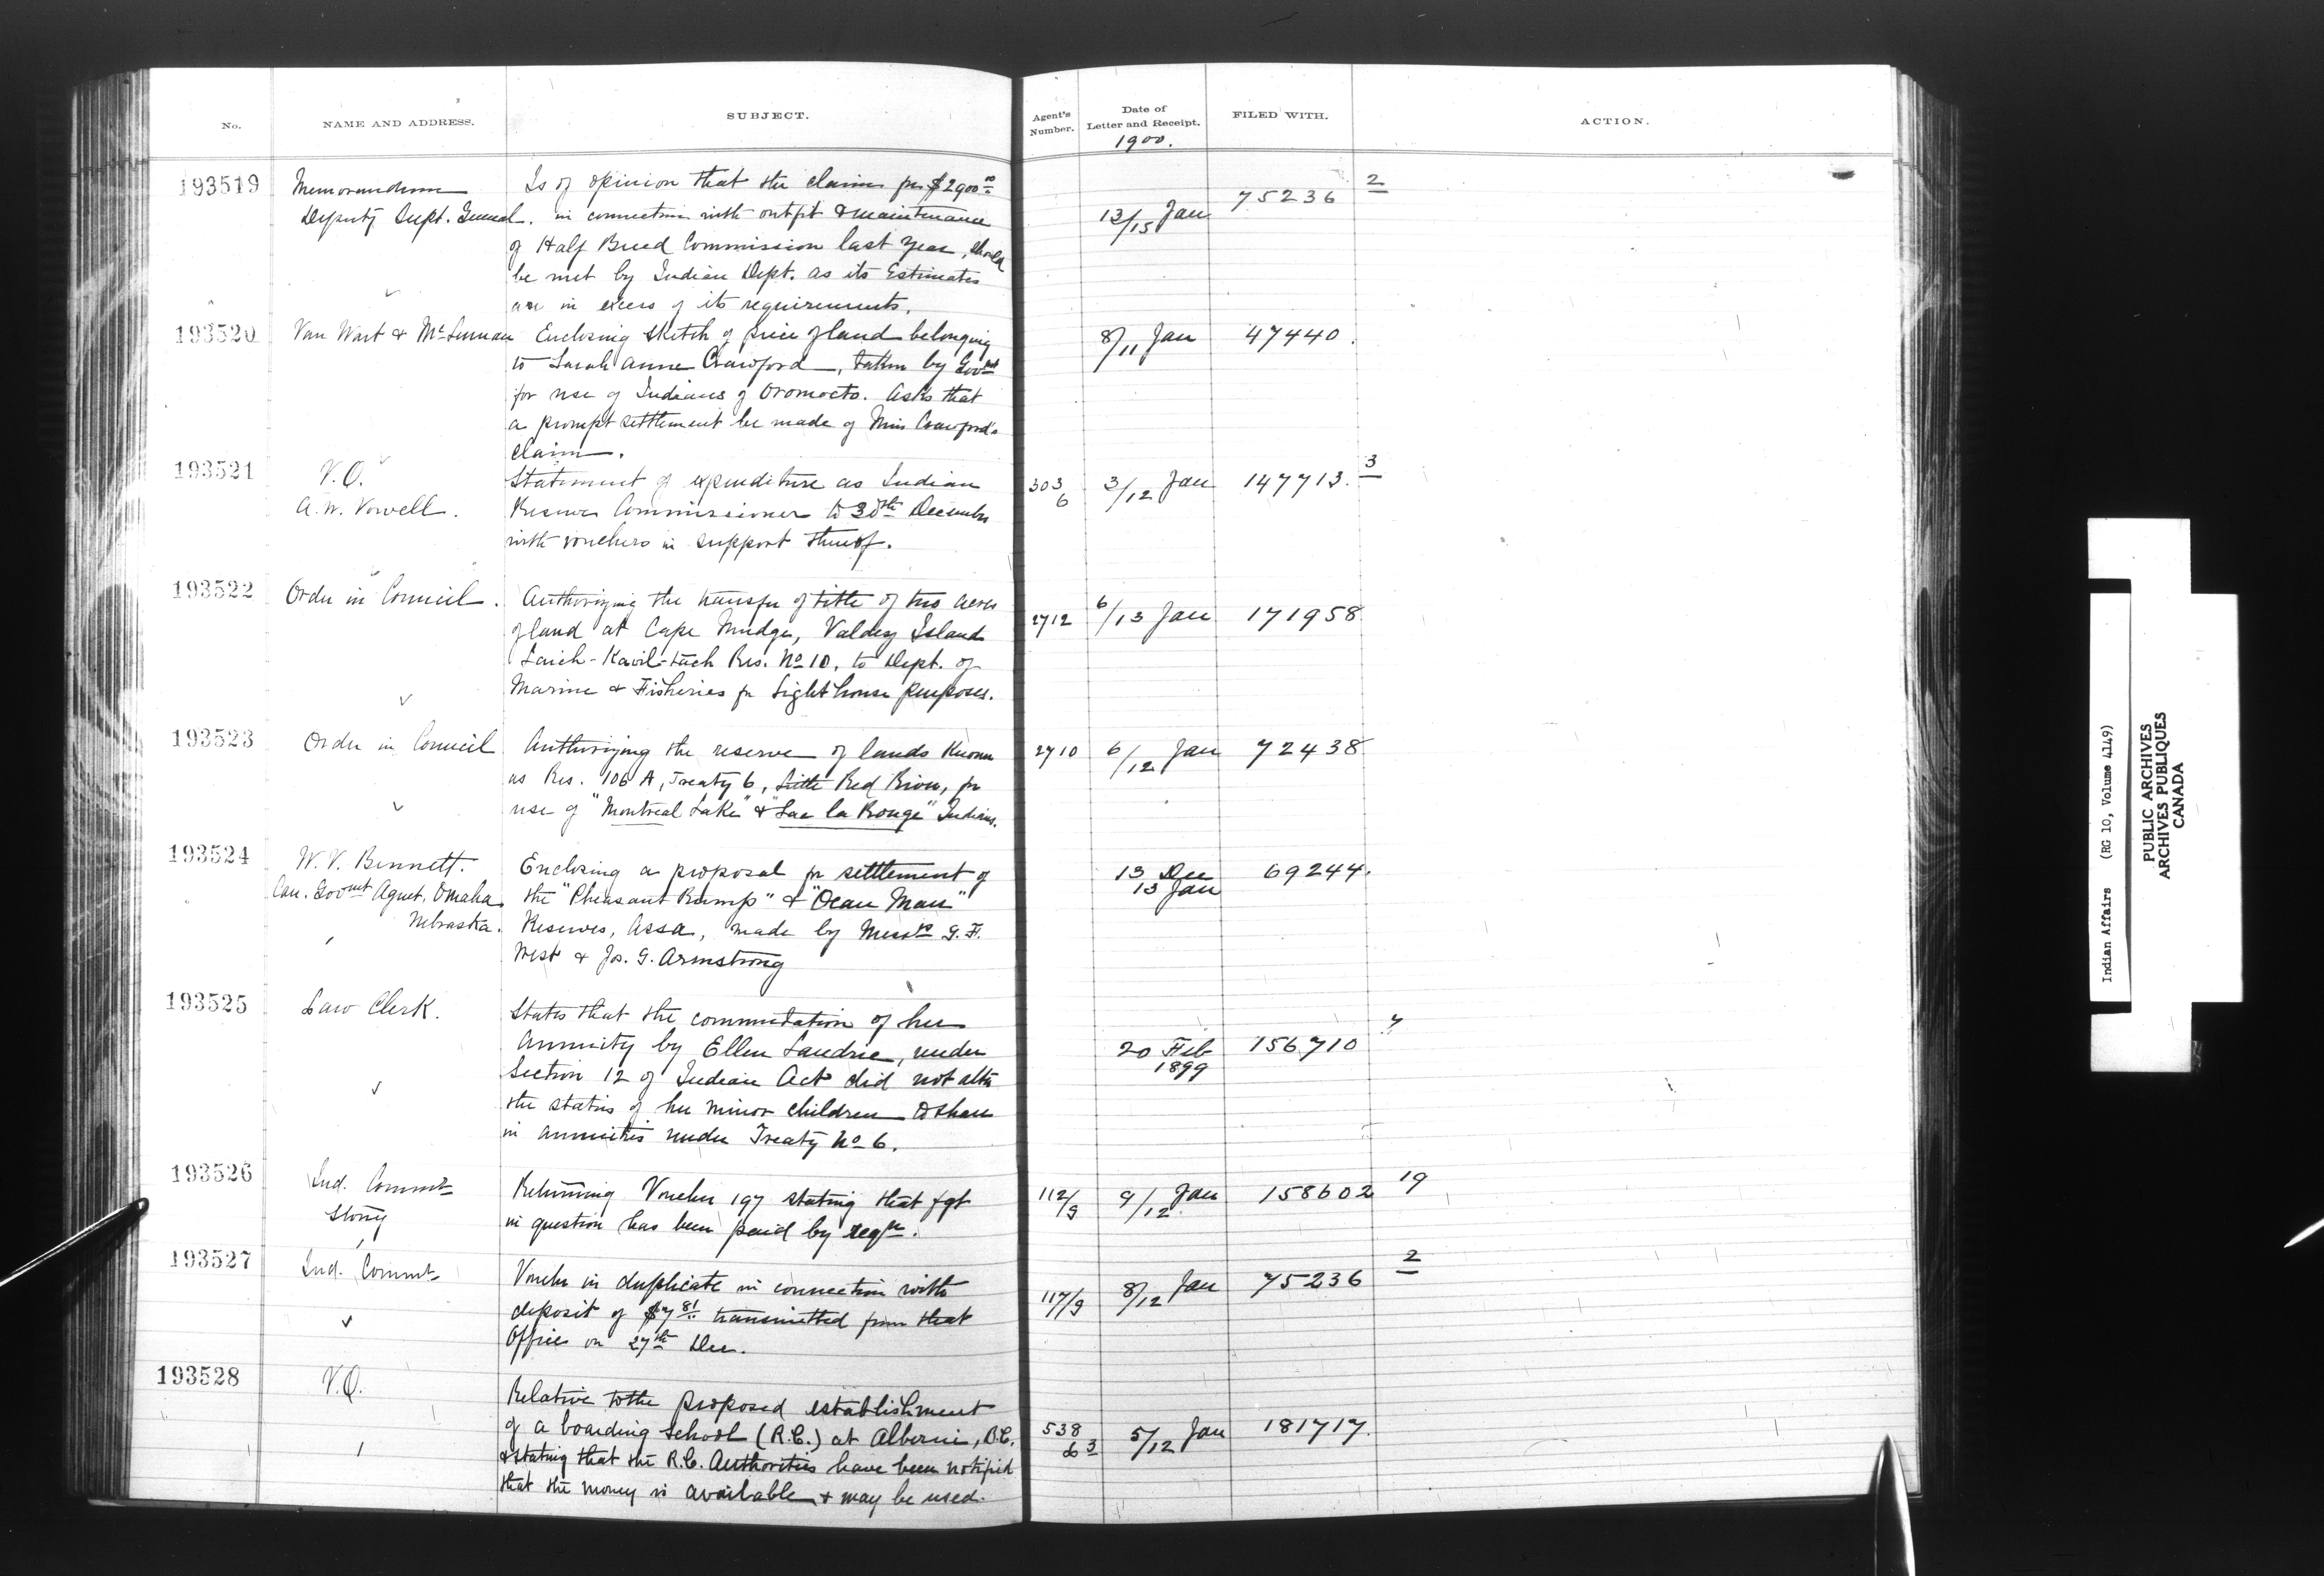 No. NAME AND ADDRESS. SUBJECT. Agent's Number. Date of Letter and Receipt. FILED WITH. ACTION.
1900.
193519 Memorandum Is of opinion that the claims for $2900 00 75236 2
Deputy Supt. General. in connection with outfit & maintenance 13/15 Jan
of Half Breed Commission last year, should
be met by Indian Dept. as its Estimates
are in excess of its requirements.
193520 Van Wart & McLennan Enclosing sketch of piece of land belonging 8/11 Jan 47440.
to Sarah Anne Crawford, taken by Govmt
for use of Indians of Oromocto. Asks that
a prompt settlement be made of Miss Crawford's
claim.
193521 V.O. Statement of expenditure as Indian 303 6 3/12 Jan 147713. 3
A. W. Vowell. Reserve Commissioner to 30th December
with vouchers in support thereof.
193522 Order in Council. Authorizing the transfer of title of two acres
of land at Cape Mudge, Valdez Island 2712 6/13 Jan 171958
Laich-Kwil-tach Res. No 10, to Dept. of
Marine & Fisheries for Lighthouse purposes.
193523 Order in Council Authorizing the reserve of lands known 2710 6/12 Jan 72438
as Res. 106 A, Treaty 6, Little Red River, for
use of "Montreal Lake" & "Lac la Ronge" Indians.
193524 W. V. Bennett. Enclosing a proposal for settlement of 13 Dec 69244.
Can. Govmt Agent, Omaha the "Pheasant Rump" & "Ocean Man" 13 Jan
Nebraska. Reserves, Assa, made by Messrs G. F.
West & Jos. G. Armstrong
193525 Law Clerk. States that the commutation of her
Annuity by Ellen Landrie, under 20 Feb 156710 7
Section 12 of Indian Act did not alter 1899
the status of her minor children to share
in annuities under Treaty No 6.
193526 Ind. Commr Returning Voucher 197 stating that fgt 112/9 9/12 Jan 158602 19
Stony in question has been paid by reqn.
193527 Ind. Commr Voucher in duplicate in connection with 117/9 8/12 Jan 75236 2
deposit of $7 81 transmitted from that
Office on 27th Dec.
193528 V.O. Relative to the proposed establishment
of a boarding school (R.C.) at Alberni, B.C. 538 3 5/12 Jan 181717.
& stating that the R.C. Authorities have been notified
that the money is available & may be used.
Indian Affairs (RG 10, Volume 4149)
PUBLIC ARCHIVES
ARCHIVES PUBLIQUES
CANADA